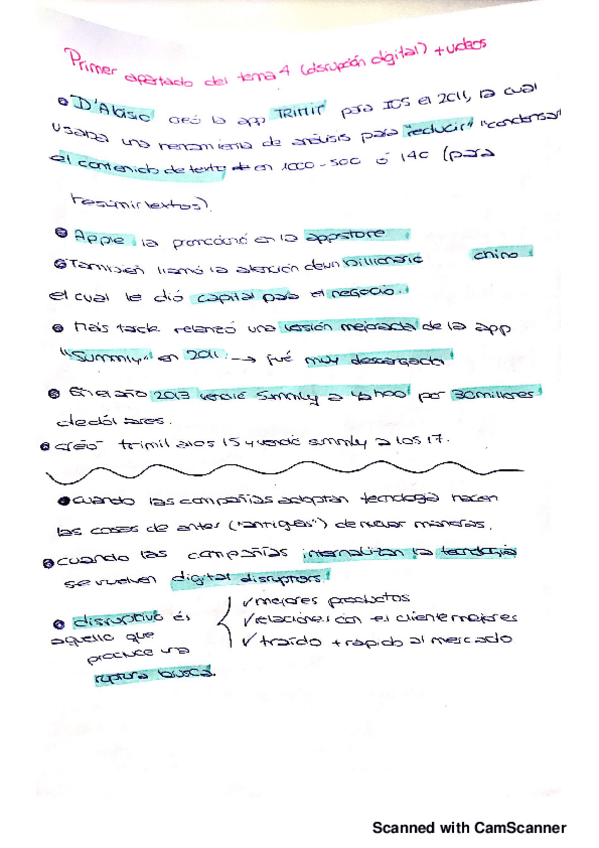 Primer apartado del tema 4 (disrupción digital) + videos
D'Aloisio creó la app Trimit para IOS el 2011, la cual
usaba una herramienta de análisis para "reducir" "condensar"
el contenido de texto en 1000 - 500 ó 140 (para
resumir textos).
Apple la promocionó en la appstore
También llamó la atención de un billionario chino
el cual le dió capital para el negocio.
Más tarde relanzó una versión mejorada de la app
"Summly" en 2011. → fué muy descargada
En el año 2013 vendió Summly a Yahoo por 30 millones
de dólares.
creó trimit a los 15 y vendió summly a los 17.
cuando las compañías adoptan tecnología hacen
las cosas de antes ("antiguas") de nuevas maneras.
cuando las compañías internalizan la tecnología
se vuelven digital disruptors
disruptivo és
aquello que
produce una
ruptura brusca.
✓ mejores productos
✓ relaciones con el cliente mejores
✓ traído + rapido al mercado
Scanned with CamScanner